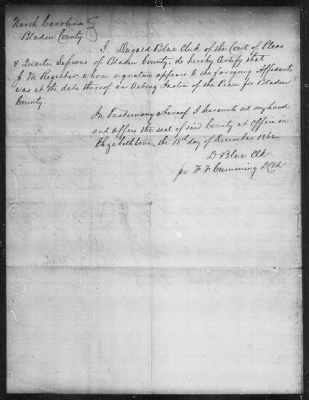 North Carolina
Bladen County
I, Dugald Blue Clerk of the Court of Pleas
& Quarter Sessions of Bladen County, do hereby Certify that
J. M. Register whose signature appears to the foregoing Affidavits
was at the date thereof an Acting Justice of the Peace for Bladen
County
In Testimony whereof I hereunto set my hand
and affix the seal of said County at Office in
Elizabethtown, the 18th day of December 1862
D Blue Clk
pr F F Cumming DClk